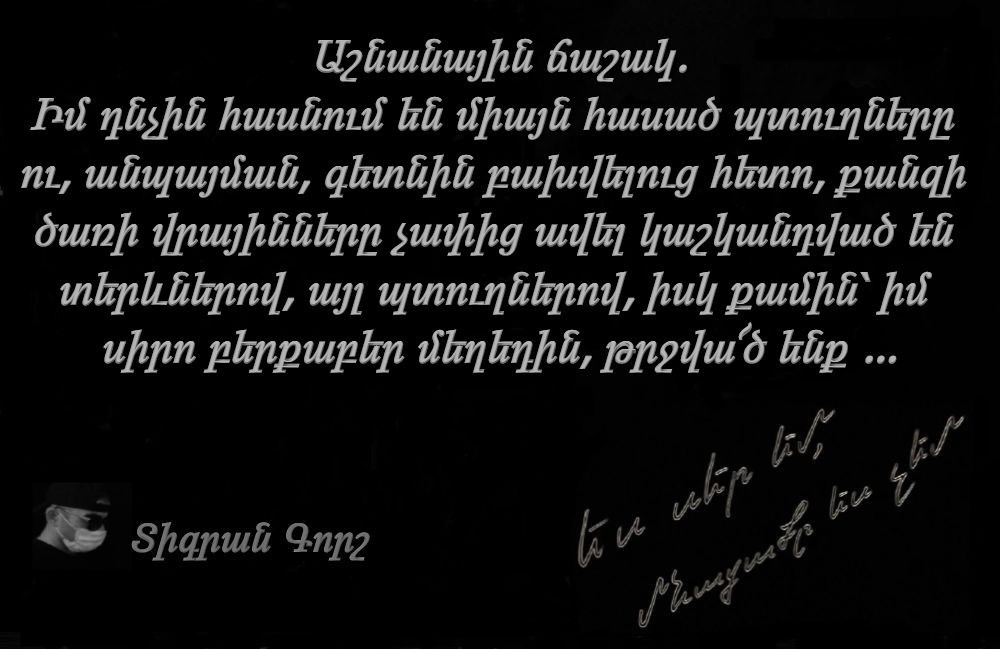 Աշնանային ճաշակ.
Իմ դնչին հասնում են միայն հասած պտուղները
ու, անպայման, գետնին բախվելուց հետո, քանզի
ծառի վրայինները չափից ավել կաշկանդված են
տերևներով, այլ պտուղներով, իսկ քամին՝ իմ
սիրո բերքաբեր մեղեդին, թրջվա՜ծ ենք ...
Տիգրան Գորշ
ես սեր եմ,
մնացածը ես չեմ